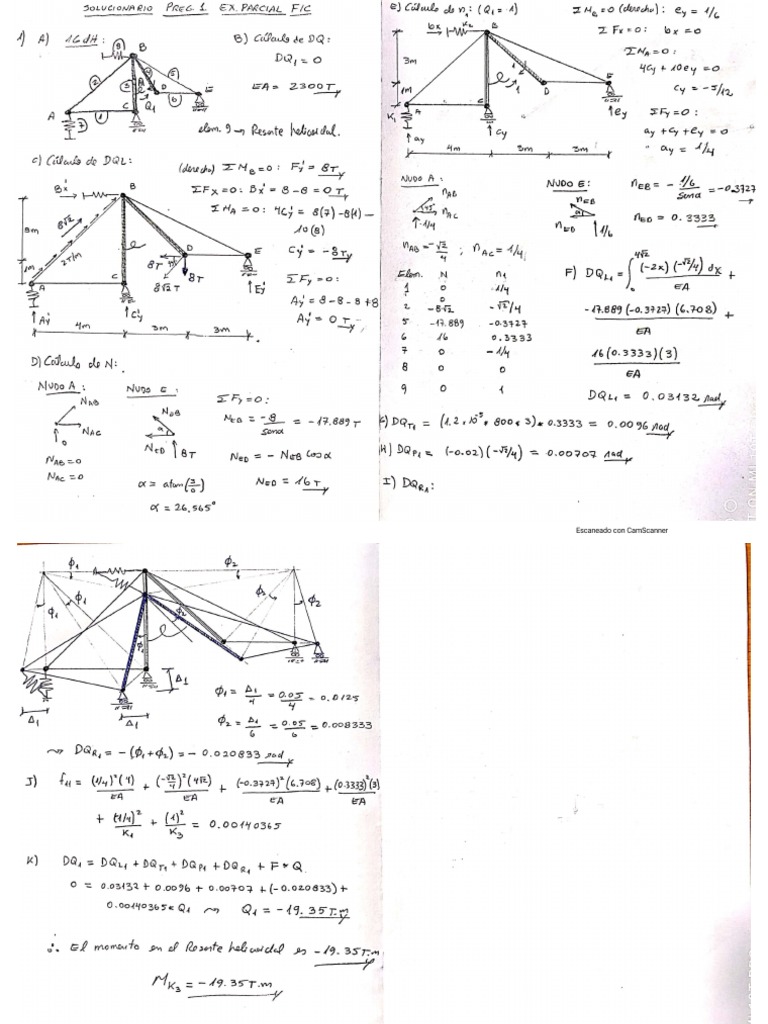 SOLUCIONARIO PREG.1 EX.PARCIAL FIC
1) A) 1G dH:
B) Cálculo de DQ:
DQ1 = 0
EA = 2300T
elem. 9 → Resorte helicoidal.
9
B
2
5
A
C
Q1
D
E
6
7
1
C) Cálculo de DQL:
(derecho) ΣMB=0: Fy' = 8T
ΣFx=0: Bx' = 8-8 = 0T
ΣMA=0: 4Cy' = 8(7)-8(1)-
10(8)
Cy' = -8Ty
ΣFy=0:
Ay' = 8-8-8+8
Ay' = 0T
Bx'
B
8√2
2T/m
3m
1m
A
C
D
E
8T
8√2 T
Ey'
Ay'
Cy'
4m
3m
3m
D) Cálculo de N:
NUDO A:
NUDO E:
ΣFy=0:
NAB
NAC
0
NAB=0
NAC=0
NED
8T
= -8/senα = -17.889T
NED = -NEB cosα
NED = 16T
α = atan(3/6)
α = 26.565°
E) Cálculo de n1: (Q1=1)
ΣMB=0 (derecho): ey = 1/6
ΣFx=0: bx=0
ΣMA=0:
4Cy + 10ey = 0
Cy = -5/12
ΣFy=0:
ay+cy+ey=0
ay = 1/4
bx
K2
B
3m
1m
A
K1
C
D
E
1
ay
cy
ey
4m
3m
3m
NUDO A:
nAB
nAC
1/4
nAB = -√2/4 ; nAC = 1/4
NUDO E:
nEB
nED
1/6
nEB = - 1/6/senα = -0.3727
nED = 0.3333
Elem. N n1
1 0 1/4
2 -8√2 -√2/4
5 -17.889 -0.3727
6 16 0.3333
7 0 -1/4
8 0 0
9 0 1
F) DQL1 = ∫0 4√2 (-2x)(-√2/4)dx/EA +
-17.889(-0.3727)(6.708)/EA +
16(0.3333)(3)/EA
DQL1 = 0.03132 rad
G) DQT1 = (1.2×10⁻⁵ * 800 * 3) * 0.3333 = 0.0096 rad
H) DQP1 = (-0.02)(-√2/4) = 0.00707 rad
I) DQR1:
Escaneado con CamScanner
ϕ1
ϕ2
ϕ1
ϕ1
ϕ2
ϕ2
Δ1
Δ1
Δ1
ϕ1 = Δ1/4 = 0.05/4 = 0.0125
ϕ2 = Δ1/6 = 0.05/6 = 0.008333
DQR1 = -(ϕ1+ϕ2) = -0.020833 rad
J) f11 = (1/4)²(4)/EA + (-√2/4)²(4√2)/EA + (-0.3727)²(6.708)/EA + (0.3333)²(3)/EA
+ (-1/4)²/K1 + (1)²/K3 = 0.00140365
K) DQ1 = DQL1 + DQT1 + DQP1 + DQR1 + F*Q
0 = 0.03132 + 0.0096 + 0.00707 + (-0.020833) +
0.00140365*Q1 Q1 = -19.35T.m
∴ El momento en el Resorte helicoidal es -19.35T.m
MK3 = -19.35T.m